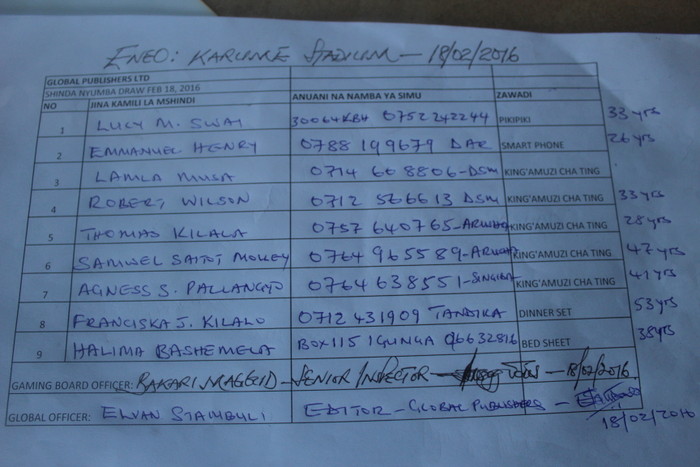 ENEO: KARUME STADIUM - 18/02/2016
GLOBAL PUBLISHERS LTD
SHINDA NYUMBA DRAW FEB 18, 2016
NO JINA KAMILI LA MSHINDI ANUANI NA NAMBA YA SIMU ZAWADI
1 LUCY M. SWAI 30064 KBH 0752242244 PIKIPIKI 33 yrs
2 EMMANUEL HENRY 0788 199679 DAR SMART PHONE 26 yrs
3 LAMLA MUSA 0714 608806-DSM KING'AMUZI CHA TING
4 ROBERT WILSON 0712 566613 DSM KING'AMUZI CHA TING 33 yrs
5 THOMAS KILALA 0757 640765-ARUSHA KING'AMUZI CHA TING 28 yrs
6 SAMWEL SAITOT MOLLEY 0764 965589-ARUSHA KING'AMUZI CHA TING 47 yrs
7 AGNESS S. PALLANGYO 0764 638551-SINGIDA KING'AMUZI CHA TING 41 yrs
8 FRANCISKA J. KILALO 0712 431909 TANDIKA DINNER SET 53 yrs
9 HALIMA BASHEMELA BOX 115 IGUNGA BED SHEET 38 yrs
GAMING BOARD OFFICER: BAKARI MAGEID - SENIOR INSPECTOR - 18/02/2016.
GLOBAL OFFICER: ELVAN STAMBULI EDITOR - GLOBAL PUBLISHERS -
18/02/2016